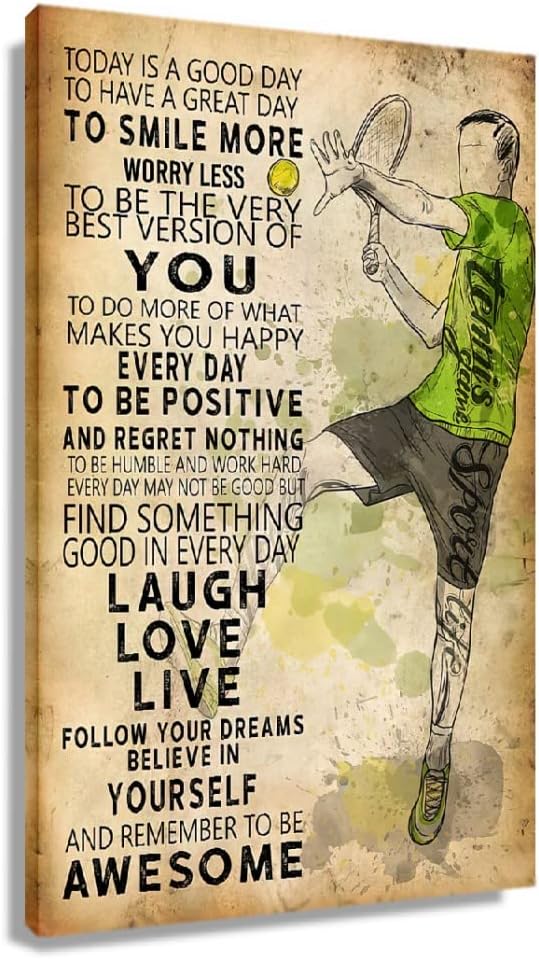 TODAY IS A GOOD DAY
TO HAVE A GREAT DAY
TO SMILE MORE
WORRY LESS
TO BE THE VERY
BEST VERSION OF
YOU
TO DO MORE OF WHAT
MAKES YOU HAPPY
EVERY DAY
TO BE POSITIVE
AND REGRET NOTHING
TO BE HUMBLE AND WORK HARD
EVERY DAY MAY NOT BE GOOD BUT
FIND SOMETHING
GOOD IN EVERY DAY
LAUGH
LOVE
LIVE
FOLLOW YOUR DREAMS
BELIEVE IN
YOURSELF
AND REMEMBER TO BE
AWESOME
tennis
game
Sport
life